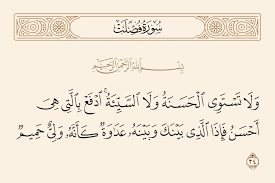 سُورَةُ فُصِّلَتْ
بِسْمِ اللَّهِ الرَّحْمَٰنِ الرَّحِيمِ
وَلَا تَسْتَوِى الْحَسَنَةُ وَلَا السَّيِّئَةُ ۚ ادْفَعْ بِالَّتِى هِىَ
أَحْسَنُ فَإِذَا الَّذِى بَيْنَكَ وَبَيْنَهُۥ عَدَاوَةٌ كَأَنَّهُۥ وَلِىٌّ حَمِيمٌ
٣٤